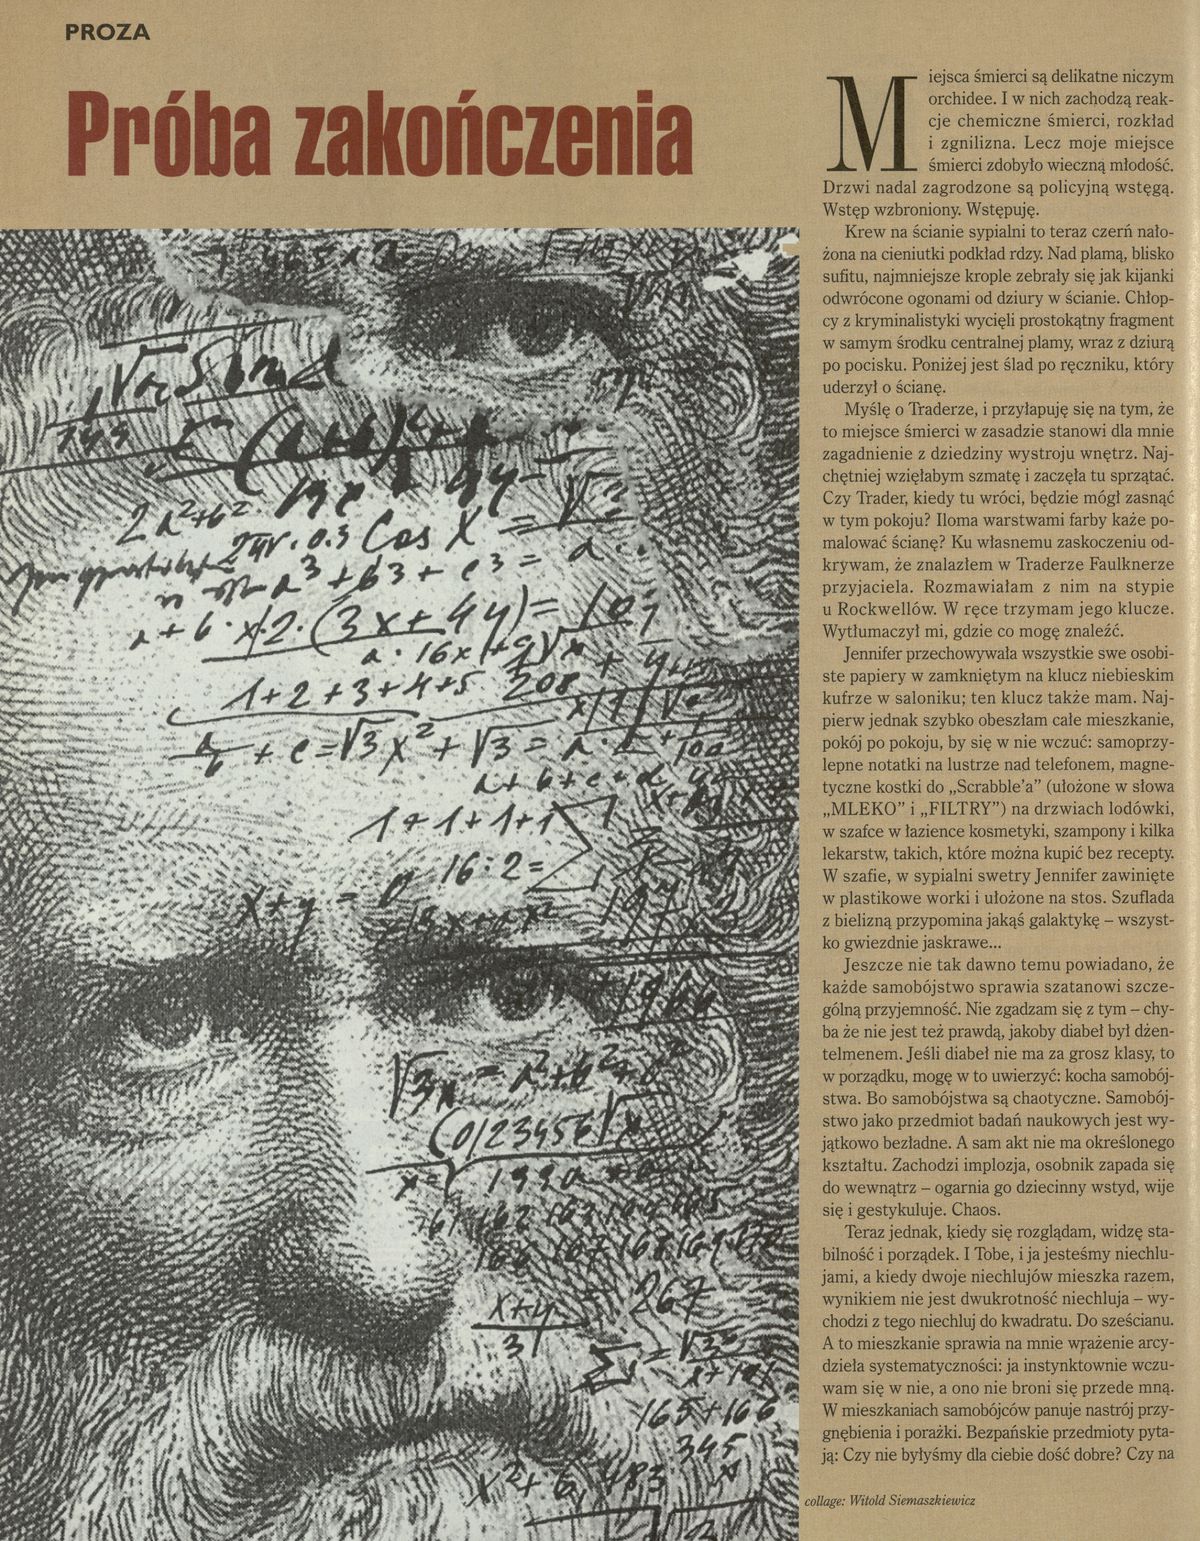 PROZA
Próba zakończenia
Miejsca śmierci są delikatne niczym
orchidee. I w nich zachodzą reak-
cje chemiczne śmierci, rozkład
i zgnilizna. Lecz moje miejsce
śmierci zdobyło wieczną młodość.
Drzwi nadal zagrodzone są policyjną wstęgą.
Wstęp wzbroniony. Wstępuję.
Krew na ścianie sypialni to teraz czerń nało-
żona na cieniutki podkład rdzy. Nad plamą, blisko
sufitu, najmniejsze krople zebrały się jak kijanki
odwrócone ogonami od dziury w ścianie. Chłop-
cy z kryminalistyki wycięli prostokątny fragment
w samym środku centralnej plamy, wraz z dziurą
po pocisku. Poniżej jest ślad po ręczniku, który
uderzył o ścianę.
Myślę o Traderze, i przyłapuję się na tym, że
to miejsce śmierci w zasadzie stanowi dla mnie
zagadnienie z dziedziny wystroju wnętrz. Naj-
chętniej wzięłabym szmatę i zaczęła tu sprzątać.
Czy Trader, kiedy tu wróci, będzie mógł zasnąć
w tym pokoju? Iloma warstwami farby każe po-
malować ścianę? Ku własnemu zaskoczeniu od-
krywam, że znalazłem w Traderze Faulknerze
przyjaciela. Rozmawiałam z nim na stypie
u Rockwellów. W ręce trzymam jego klucze.
Wytłumaczył mi, gdzie co mogę znaleźć.
Jennifer przechowywała wszystkie swe osobi-
ste papiery w zamkniętym na klucz niebieskim
kufrze w saloniku; ten klucz także mam. Naj-
pierw jednak szybko obeszłam całe mieszkanie,
pokój po pokoju, by się w nie wczuć: samoprzy-
lepne notatki na lustrze nad telefonem, magne-
tyczne kostki do „Scrabble’a” (ułożone w słowa
„MLEKO” i „FILTRY”) na drzwiach lodówki,
w szafce w łazience kosmetyki, szampony i kilka
lekarstw, takich, które można kupić bez recepty.
W szafie, w sypialni swetry Jennifer zawinięte
w plastikowe worki i ułożone na stos. Szuflada
z bielizną przypomina jakąś galaktykę – wszyst-
ko gwiezdnie jaskrawe...
Jeszcze nie tak dawno temu powiadano, że
każde samobójstwo sprawia szatanowi szcze-
gólną przyjemność. Nie zgadzam się z tym – chy-
ba że nie jest też prawdą, jakoby diabeł był dżen-
telmenem. Jeśli diabeł nie ma za grosz klasy, to
w porządku, mogę w to uwierzyć: kocha samobój-
stwa. Bo samobójstwa są chaotyczne. Samobój-
stwo jako przedmiot badań naukowych jest wy-
jątkowo bezładne. A sam akt nie ma określonego
kształtu. Zachodzi implozja, osobnik zapada się
do wewnątrz – ogarnia go dziecinny wstyd, wije
się i gestykuluje. Chaos.
Teraz jednak, kiedy się rozglądam, widzę sta-
bilność i porządek. I Tobe, i ja jesteśmy niechlu-
jami, a kiedy dwoje niechlujów mieszka razem,
wynikiem nie jest dwukrotność niechluja – wy-
chodzi z tego niechluj do kwadratu. Do sześcianu.
A to mieszkanie sprawia na mnie wrażenie arcy-
dzieła systematyczności: ja instynktownie wczu-
wam się w nie, a ono nie broni się przede mną.
W mieszkaniach samobójców panuje nastrój przy-
gnębienia i porażki. Bezpańskie przedmioty pyta-
ją: Czy nie byłyśmy dla ciebie dość dobre? Czy na
collage: Witold Siemaszkiewicz
2a²+b²
Cos X =
a³+b3+c3=
(3x+4y)=
1+2+3+4+5 208
1+1+1+1
16:2=
x+y = 0
(0123456
x+y
3
= 267
165+166
345